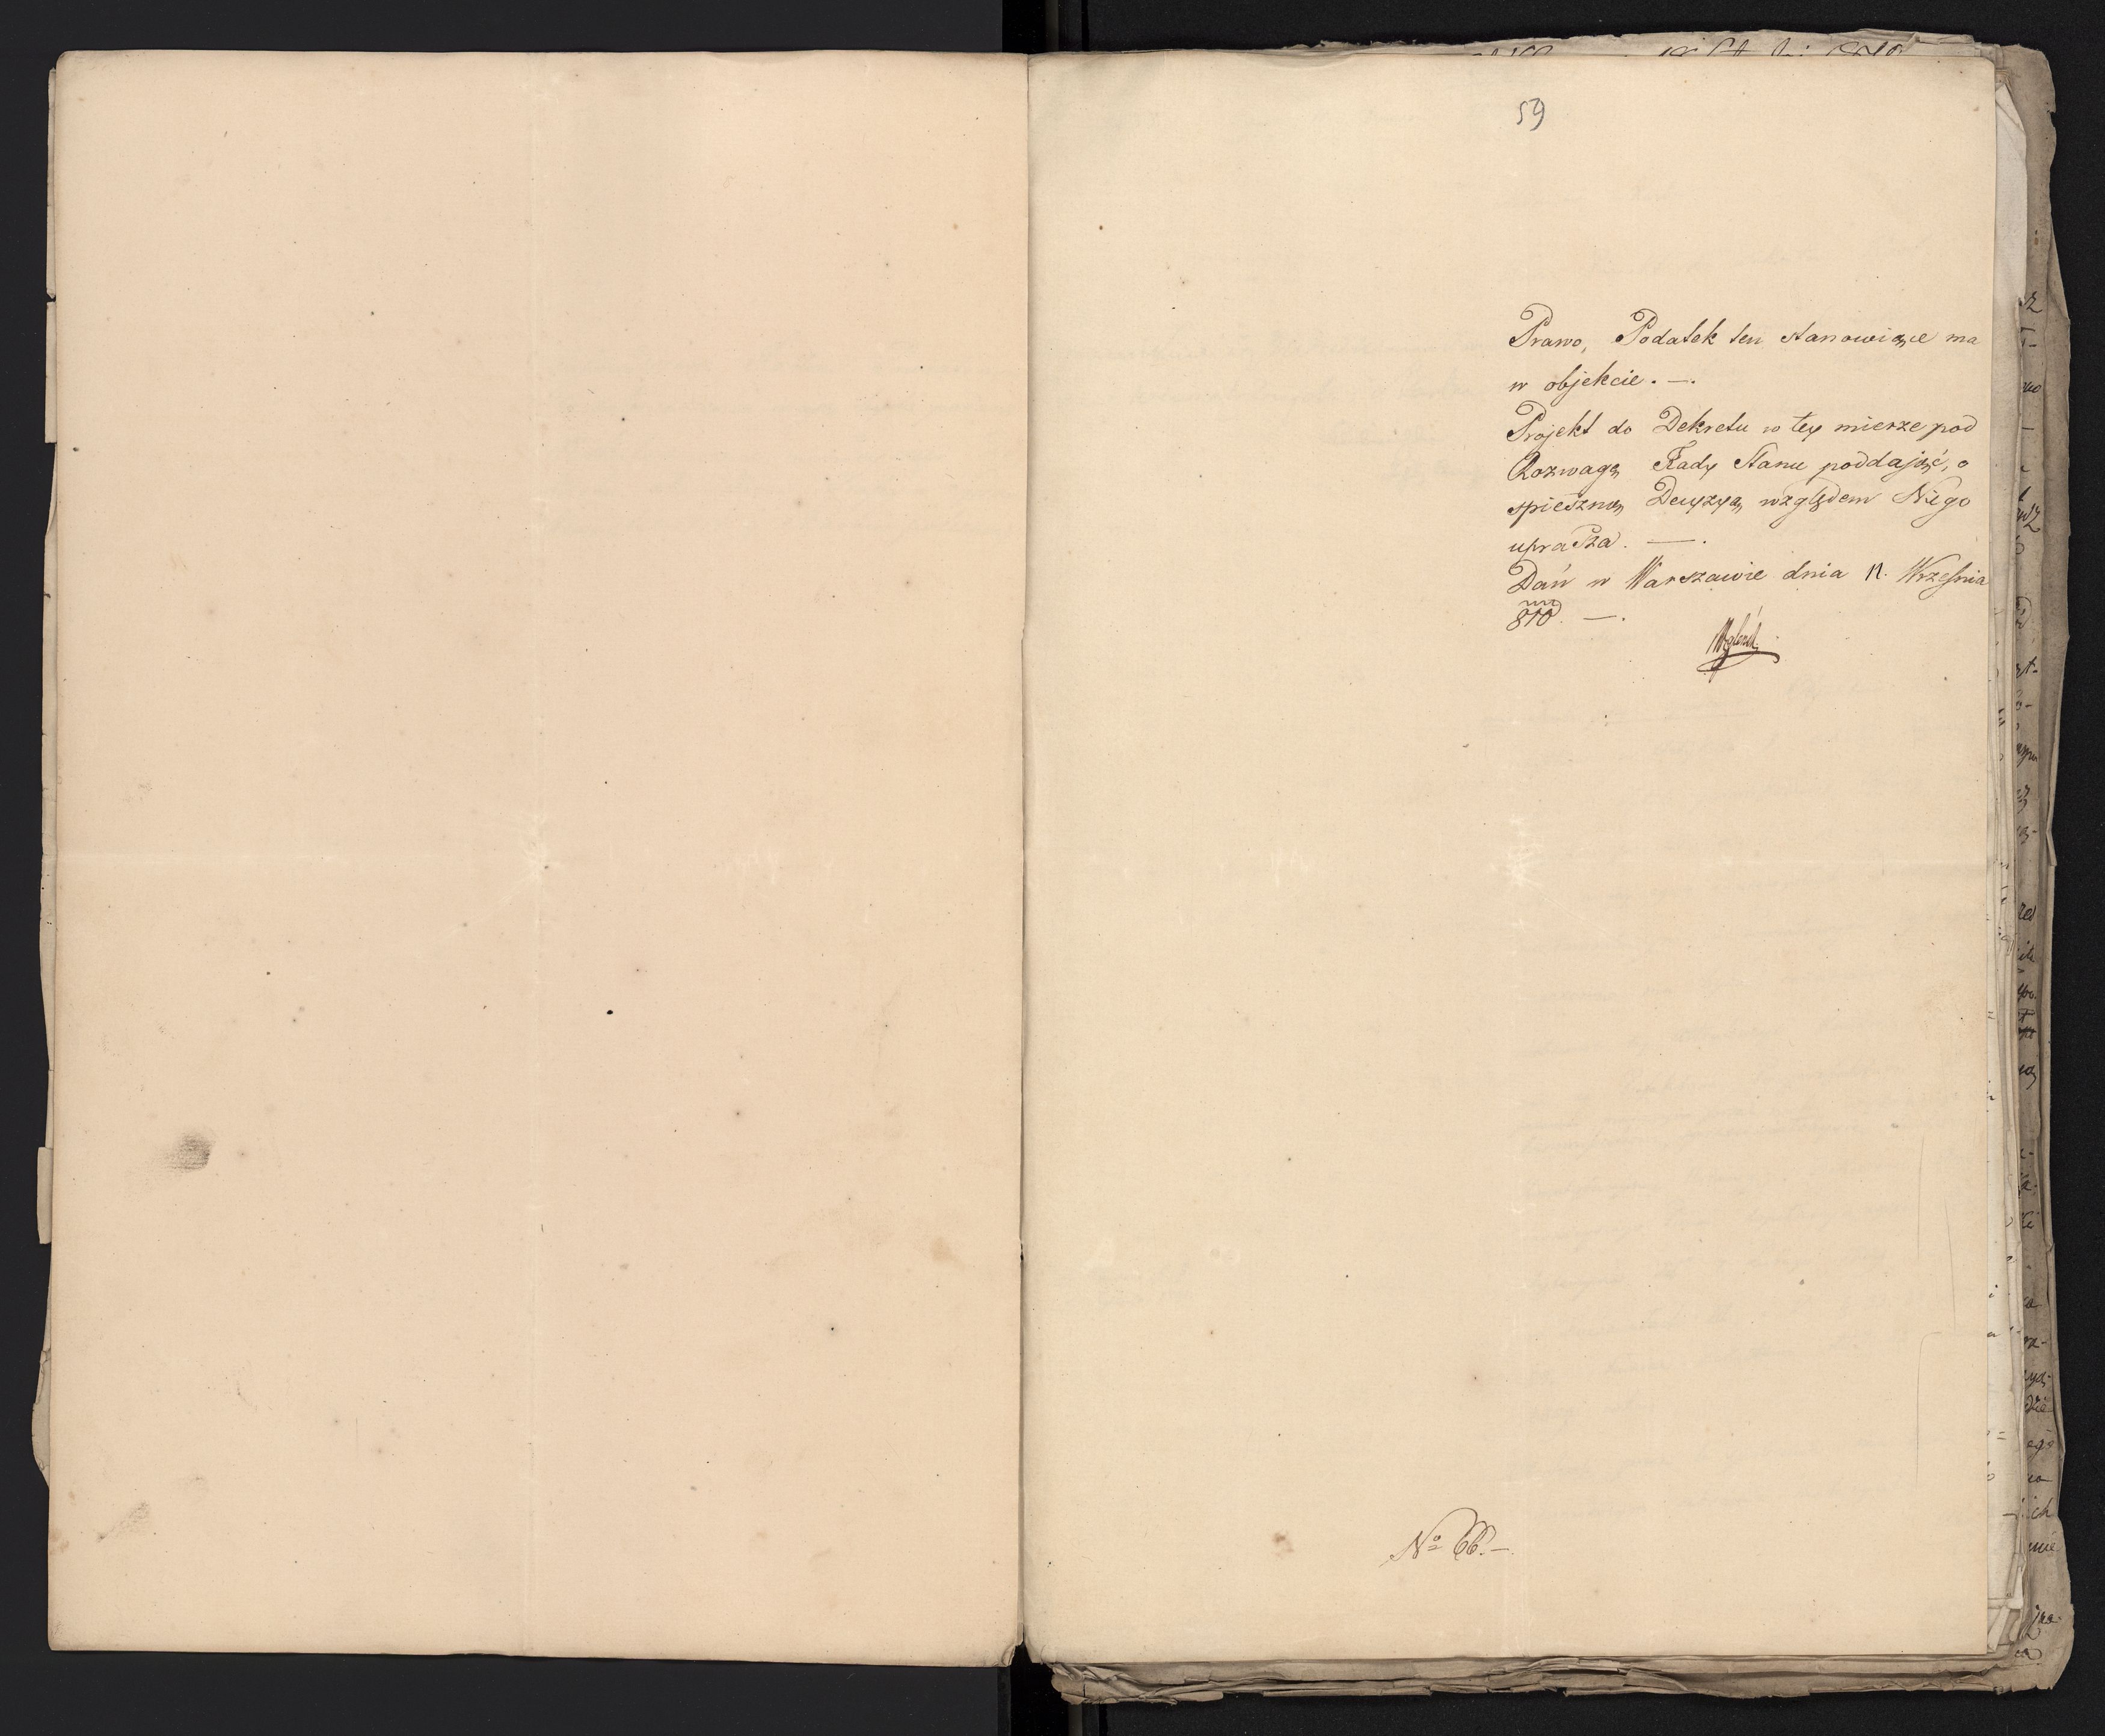 59
Prawo, Podatek ten stanowiące ma
w objekcie. —.
Projekt do Dekretu w tey mierze pod
Rozwagę Rady Stanu poddając, o
spieszną Decyzyą względem Niego
uprasza. —.
Dań w Warszawie dnia 12. Września
810. —.
Nº 66. —